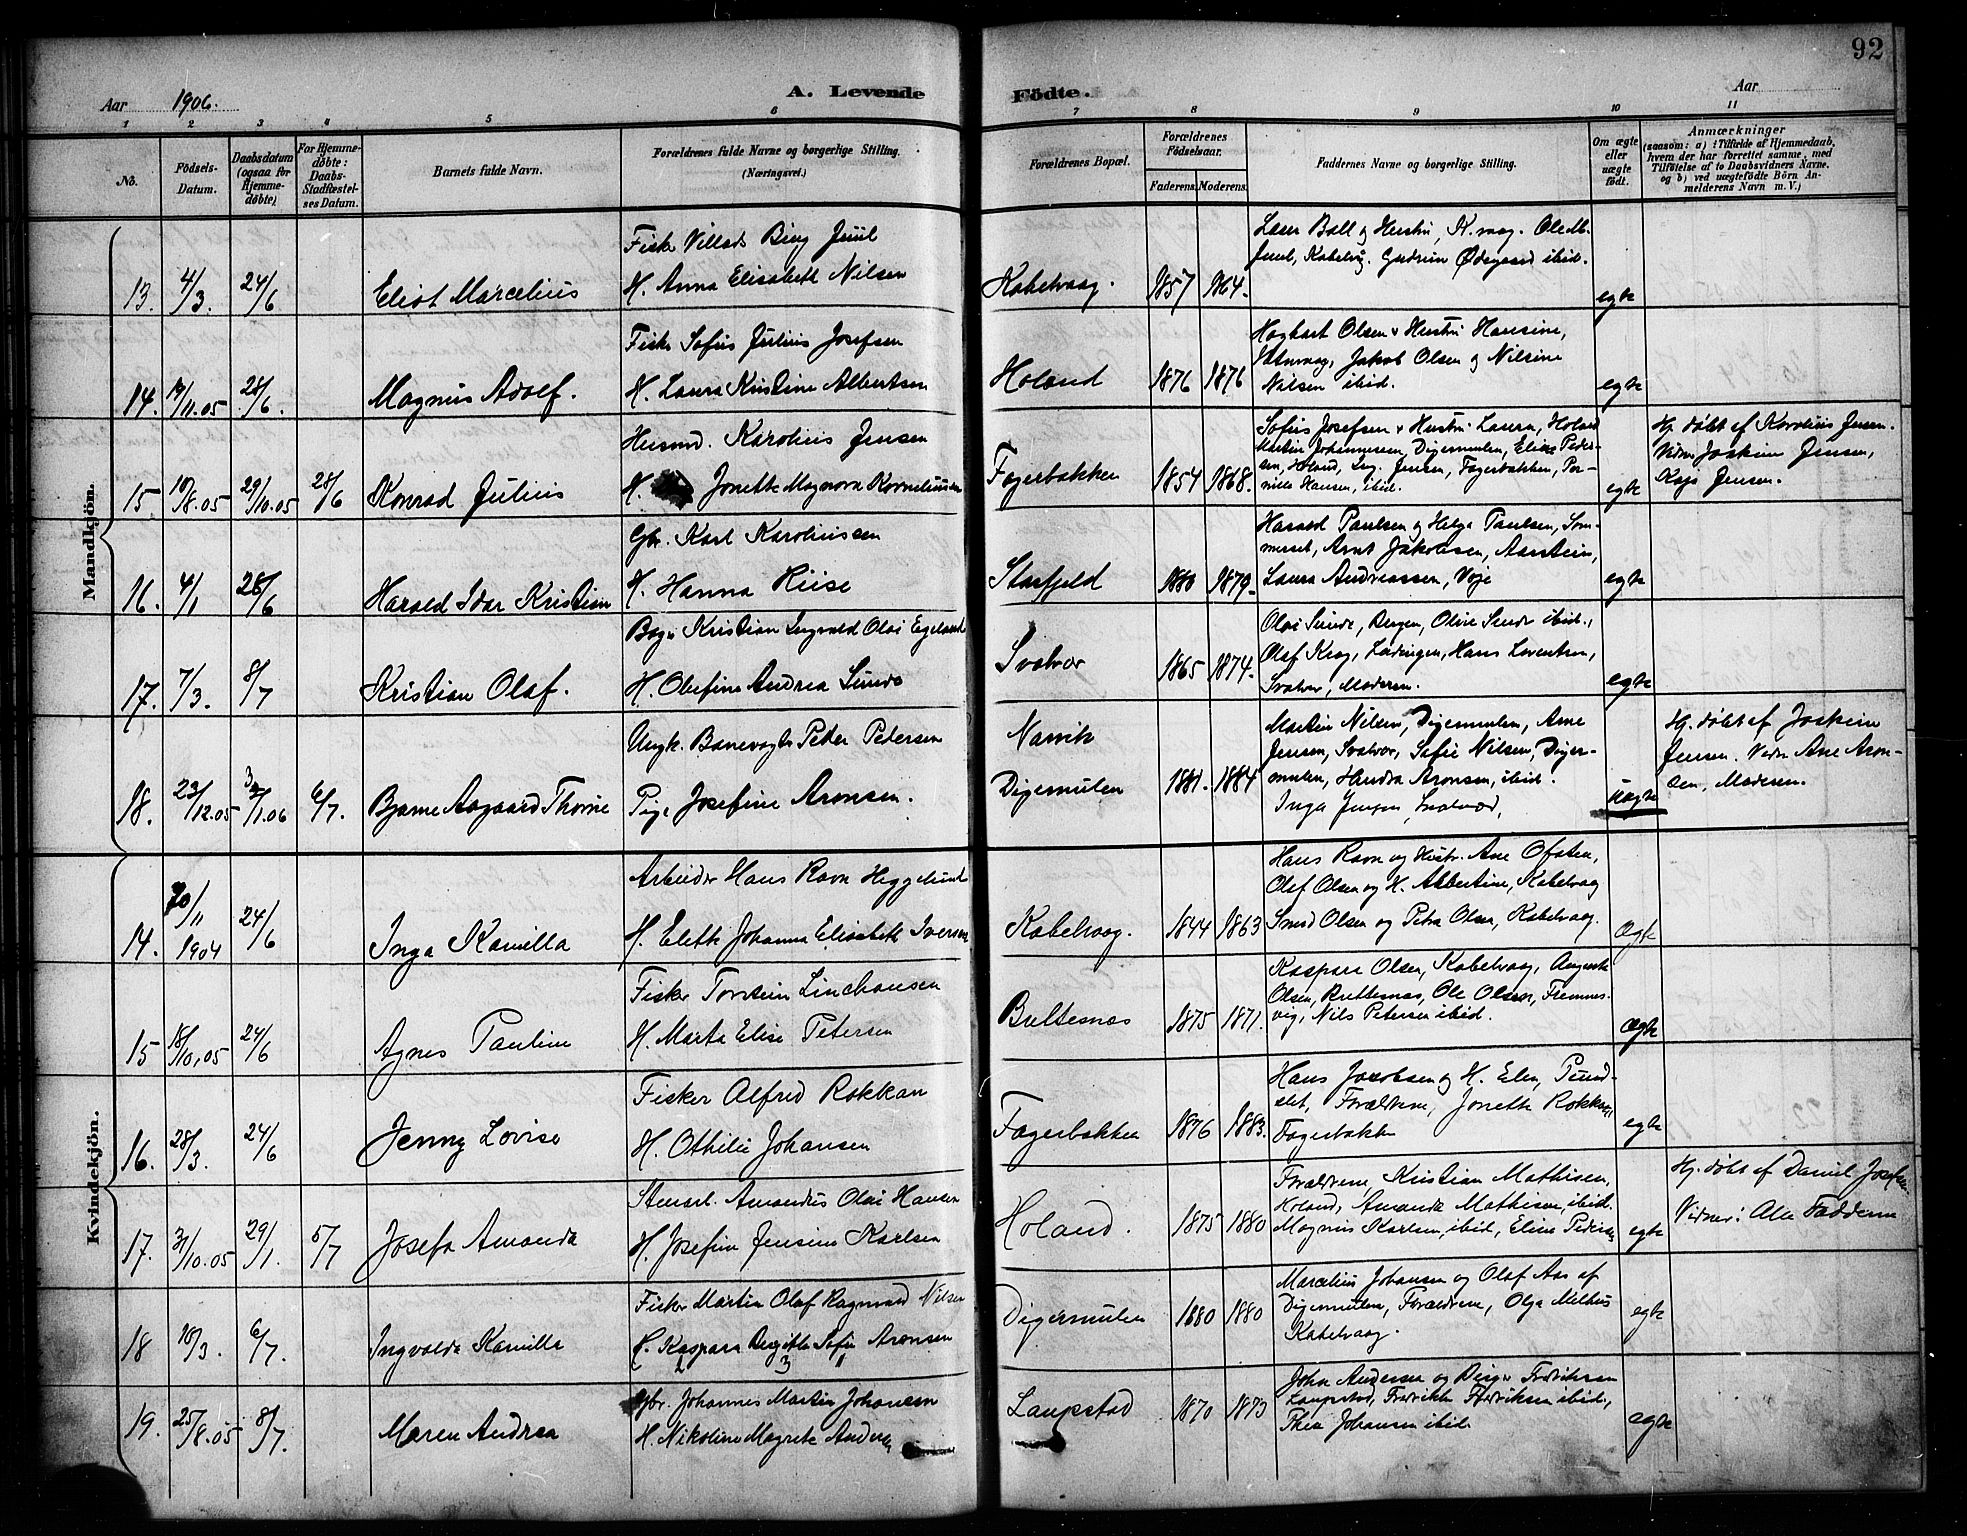 92
Aar 1906.
A. Levende
Födte.
Aar
1 2 3 4 5 6 7 8 9 10 11
No.
Födsels-
Datum.
Daabsdatum
(ogsaa for
Hjemme-
døbte).
For Hjemme-
døbte:
Daabs-
Stadfæstel-
ses Datum.
Barnets fulde Navn.
Forældrenes fulde Navne og borgerlige Stilling.
(Næringsvei.)
Forældrenes Bopæl.
Forældrenes
Födselsaar.
Faderens. Moderens.
Faddernes Navne og borgerlige Stilling.
Om ægte
eller
uægte
født.
Anmærkninger
(saasom: a) i Tilfælde af Hjemmedaab,
hvem der har forrettet samme, med
Tilføielse af to Daabsvidners Navne.
og b) ved uægtefödte Börn An-
melderens Navn m. V.)
Mandkjön.
13. 4/3. 24/6 Eliot Marcelius
Fisker Villads Bing Juul
H. Anna Elisabeth Nilsen
Kabelvaag. 1857 1864.
Ball og Hustru, K.vaag. Ole M.
Juul, Kabelvåg. Gudrun Ødegaard ibid.
egte
14. 19/11.05 28/6. Magnus Adolf.
Fisker Sofus Julius Josefsen
H. Laura Kristine Albertsen
Holand 1876 1876
Hagbart Olsen & Hustru Hansine,
Jakob Olsen og Nilsine
Nilsen ibid.
egte
15. 10/8.05 29/10.05 28/6 Konrad Julius
Husmd. Karolius Jensen
H. Jonette Magnora Korneliussen
Fagerbakken 1854 1868.
Sofus Josefsen & Hustru Laura, Holand
Martin Johannesen, Digermulen, Elias Peder-
sen, Holand, Ing. Jensen, Fagerbakken, Per-
nille Hansen, ibid.
egte
Hj. døbt af Karolius Jensen.
Vidner Joakim Jensen,
Kaja Jensen.
16. 4/1 28/6 Harald Idar Kristian
Gbr. Karl Karoliussen
H. Hanna Riise
Storfjeld 1880 1879.
Harald Paulsen og Helga Paulsen, Som-
merset, Arnt Jakobsen, Aarstein,
Laura Andreassen, Voje
egte
17. 7/3. 8/7 Kristian Olaf.
Kristian Ingvald Olai Egeland
H. Olufine Andrea Sunde
Svolvær 1865 1874.
Olai Sunde, Bergen, Oline Sunde ibid.,
Olaf Krog, Lødingen, Hans Lorentsen,
Svolvær, Moderen.
egte
18. 23/12.05 3/1.06 6/7. Bjarne Aagaard Thorne
Ungk. Banevogter Peder Petersen
Pige Josefine Aronsen.
Narvik
Digermulen 1881. 1884
Martin Nilsen, Digermulen, Arne
Jensen, Svolvær, Sofie Nilsen, Diger-
mulen, Aronsen, ibid.
Inga Jensen, Svolvær,
uægte
Hj. døbt af Joakim
Jensen. Vidn. Ane Aron-
sen, Moderen.
Kvindekjön.
14. 20/11 1904 24/6 Inga Kamilla
Arbeider Hans Ravn Heggelund
H. Elette Johanna Elisabeth Iversen
Kabelvaag. 1844 1863
Hans Ravn og Hustr. Ane Ofoten,
Olef Olsen og H. Albertine, Kabelvaag
Olsen og Petra Olsen, Kabelvaag.
Ægte
15 18/10.05 24/6 Agnes Pauline
Fisker Torstein Lindhansen
H. Marta Elise Petersen
Bultesnæs 1875 1871.
Kaspara Olsen, Kabelvaag, Auguste
Olsen, Ole Olsen, Fremnes-
vig, Nils Petersen ibid.
ægte
16. 28/3. 24/6 Jenny Lovise
Fisker Alfred Rokkan
H. Othilie Johansen
Fagerbakken 1876 1883.
Hans Jacobsen og H. Elen, Pund-
slet, Forældrene, Jonette Rokkan,
Fagerbakken
egte
17. 3/10.05 29/1. 5/7 Josefa Amanda
Amandus Olai Hansen
H. Josefine Jensine Karlsen
Holand. 1875 1880
Forældrene, Kristian Mathisen,
Holand, Amanda Mathisen, ibid.
Magnus Karlsen, ibid, Elias Pedersen
egte
Hj. døbt af Daniel Josefsen.
Vidner: Alle Fadderne
18 10/3. 6/7. Ingvalda Kamilla
Fisker Martin Olaf Ragnvald Nilsen
H. Kaspara Birgitte Sofie Aronsen
2 3 1
Digermulen 1880 1880
Marcelius Johansen og Olaf Aas af
Digermulen, Forældrene, Olga Melhus
Kabelvaag.
egte
19. 25/8.05 8/7. Maren Andrea
Gbr. Johannes Martin Johansen
H. Nikoline Magrete Anders
Laupstad 1870 1873
John Andersen og Fredriksen
Laupstad, Fredrikke Fredriksen ibid.,
Thea Johansen ibid.
egte